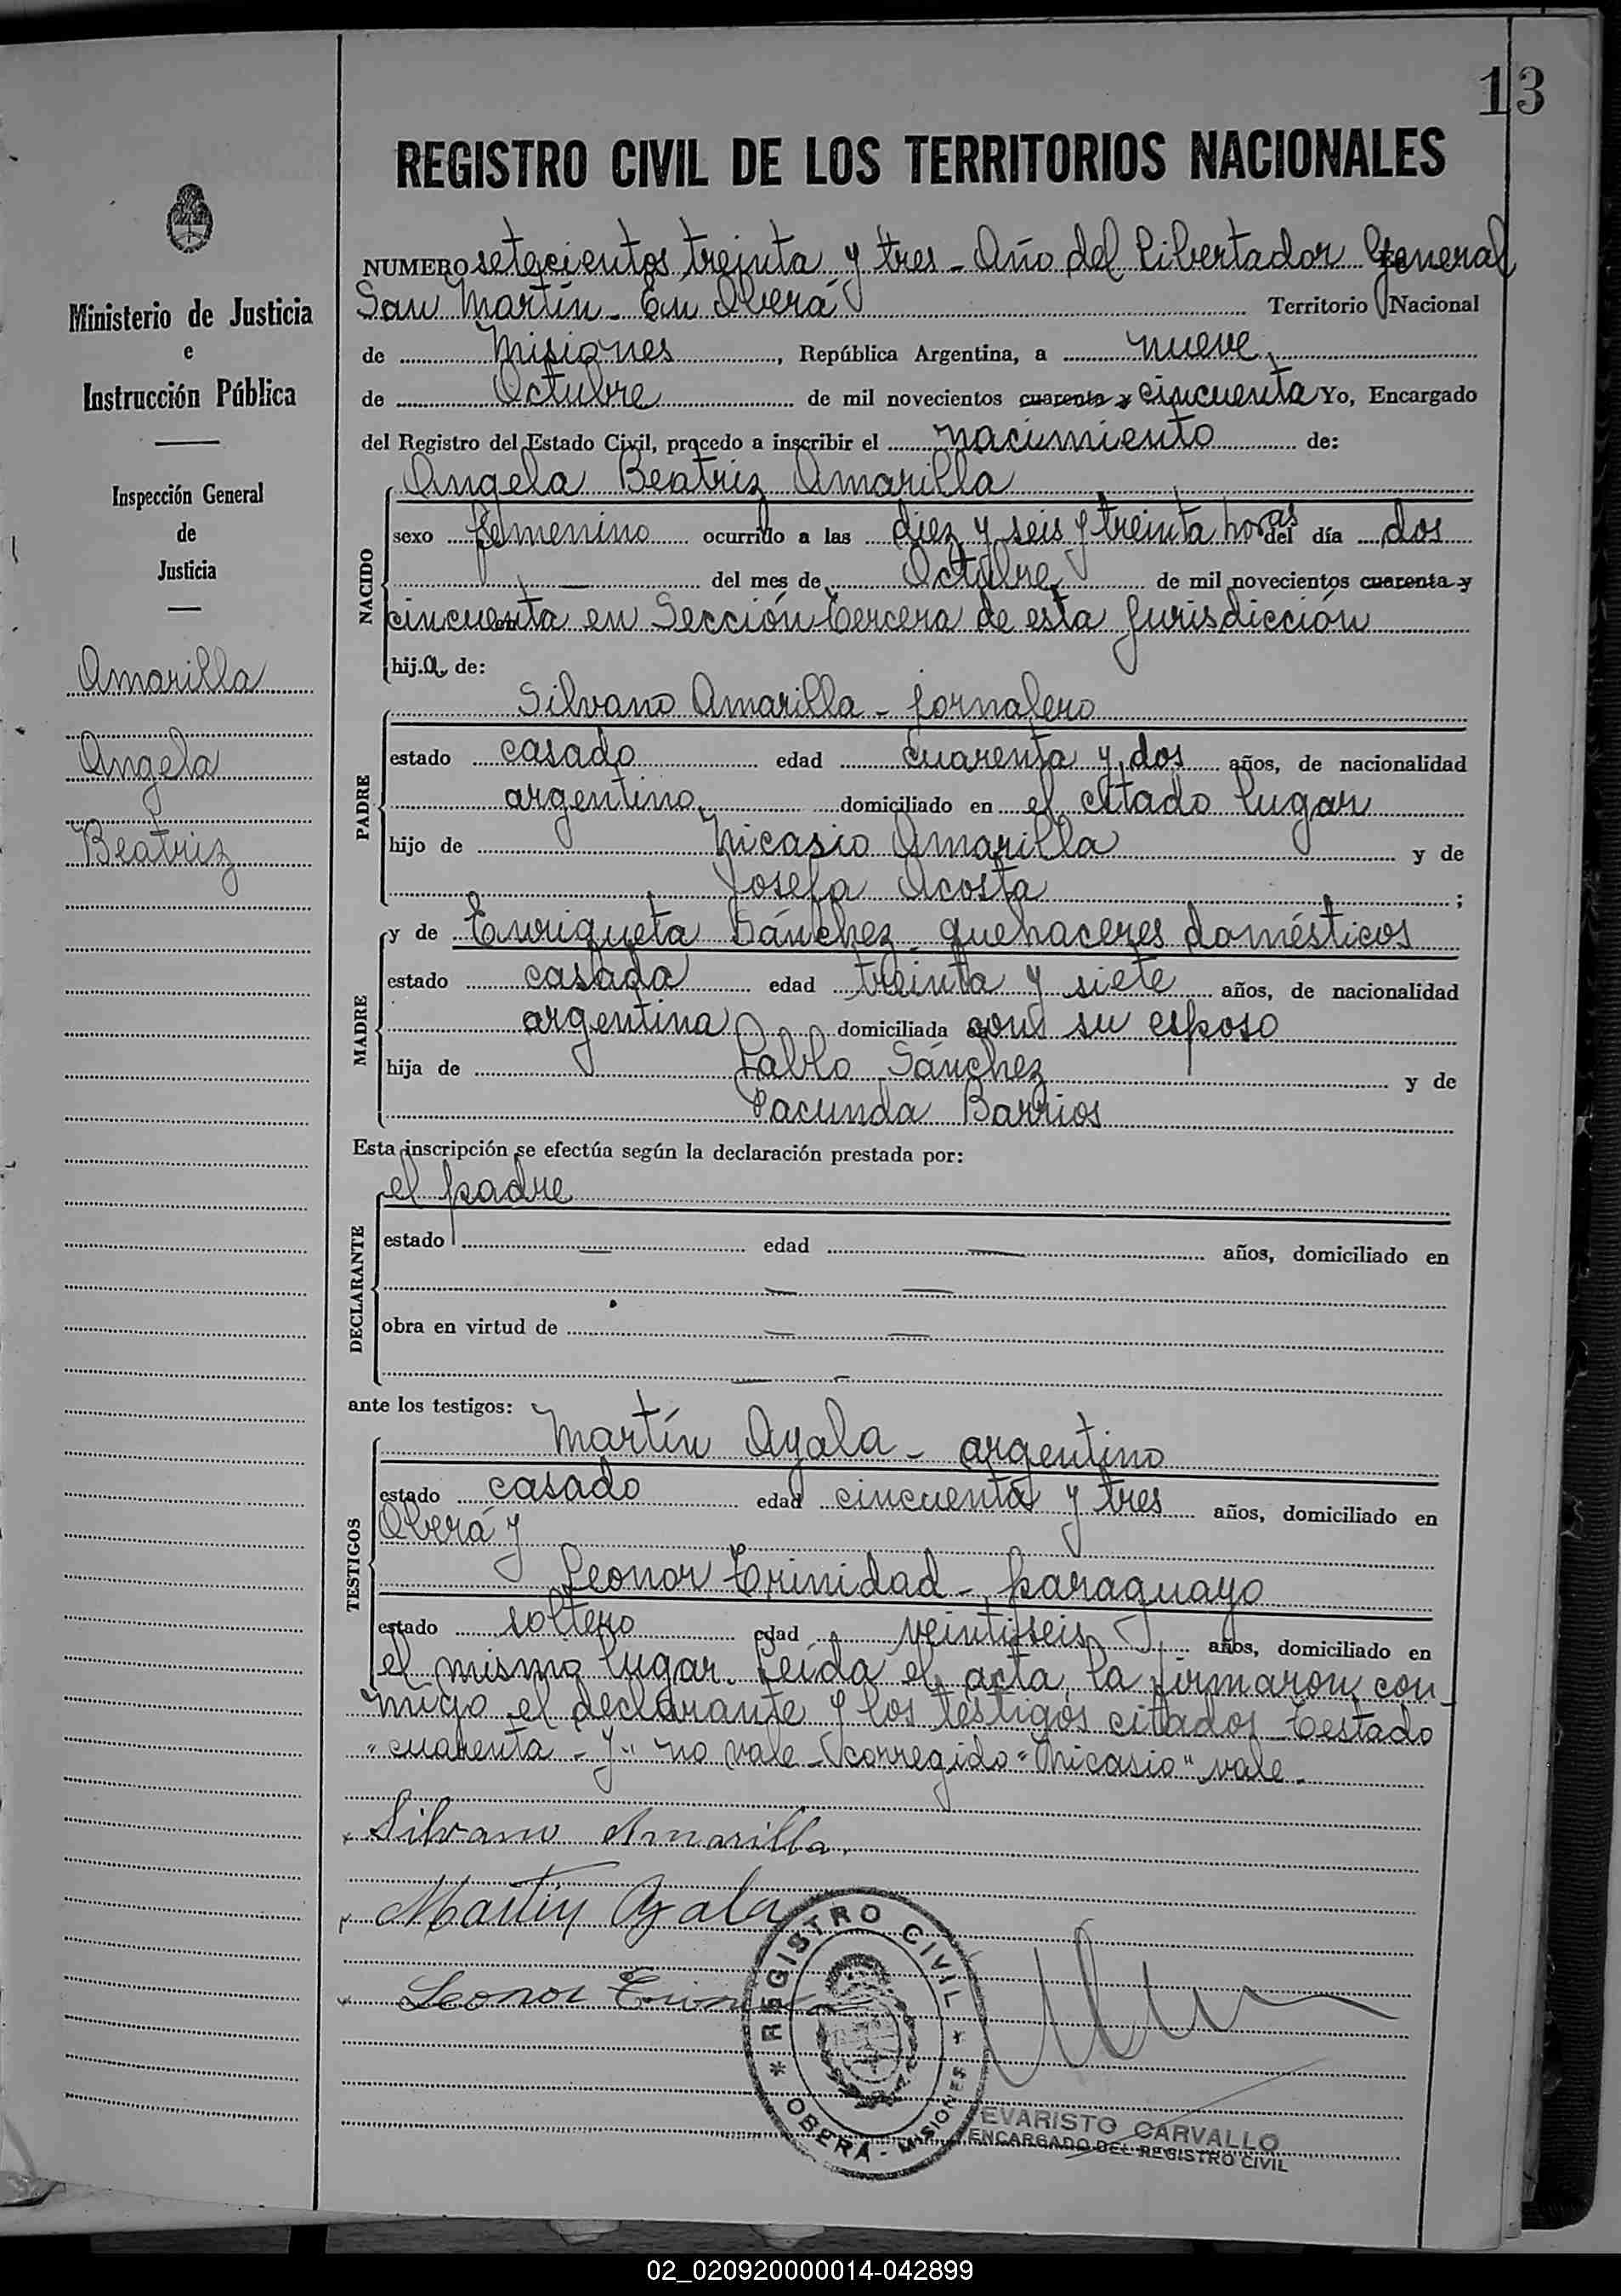 13
REGISTRO CIVIL DE LOS TERRITORIOS NACIONALES
Ministerio de Justicia
e
Instrucción Pública
Inspección General
de
Justicia
Amarilla
Angela
Beatriz
NUMERO setecientos treinta y tres - Año del Libertador General
San Martín - En Oberá Territorio Nacional
de Misiones, República Argentina, a nueve
de Octubre de mil novecientos cuarenta y cincuenta Yo, Encargado
del Registro del Estado Civil, procedo a inscribir el nacimiento de:
NACIDO
Angela Beatriz Amarilla
sexo femenino ocurrido a las diez y seis y treinta horas del día dos
del mes de Octubre de mil novecientos cuarenta y
cincuenta en Sección Tercera de esta Jurisdicción
hija de:
PADRE
Silvano Amarilla - jornalero
estado casado edad cuarenta y dos años, de nacionalidad
argentino domiciliado en el citado lugar
hijo de Nicasio Amarilla y de
Josefa Acosta ;
MADRE
y de Enriqueta Sánchez - quehaceres domésticos
estado casada edad treinta y siete años, de nacionalidad
argentina domiciliada con su esposo
hija de Pablo Sánchez y de
Facunda Barrios
Esta inscripción se efectúa según la declaración prestada por:
DECLARANTE
el padre
estado — edad — años, domiciliado en
— —
obra en virtud de — —
— —
ante los testigos:
TESTIGOS
Martín Ayala - argentino
estado casado edad cincuenta y tres años, domiciliado en
Oberá y
Leonor Trinidad - paraguayo
estado soltero edad veintiseis años, domiciliado en
el mismo lugar. Leida el acta, la firmaron con-
migo el declarante y los testigos citados - Testado
"cuarenta - y" no vale - corregido "Nicasio" vale -
Silvano Amarilla
Martin Ayala
Leonor
REGISTRO CIVIL
* OBERÁ - MISIONES *
EVARISTO CARVALLO
ENCARGADO DEL REGISTRO CIVIL
02_020920000014-042899